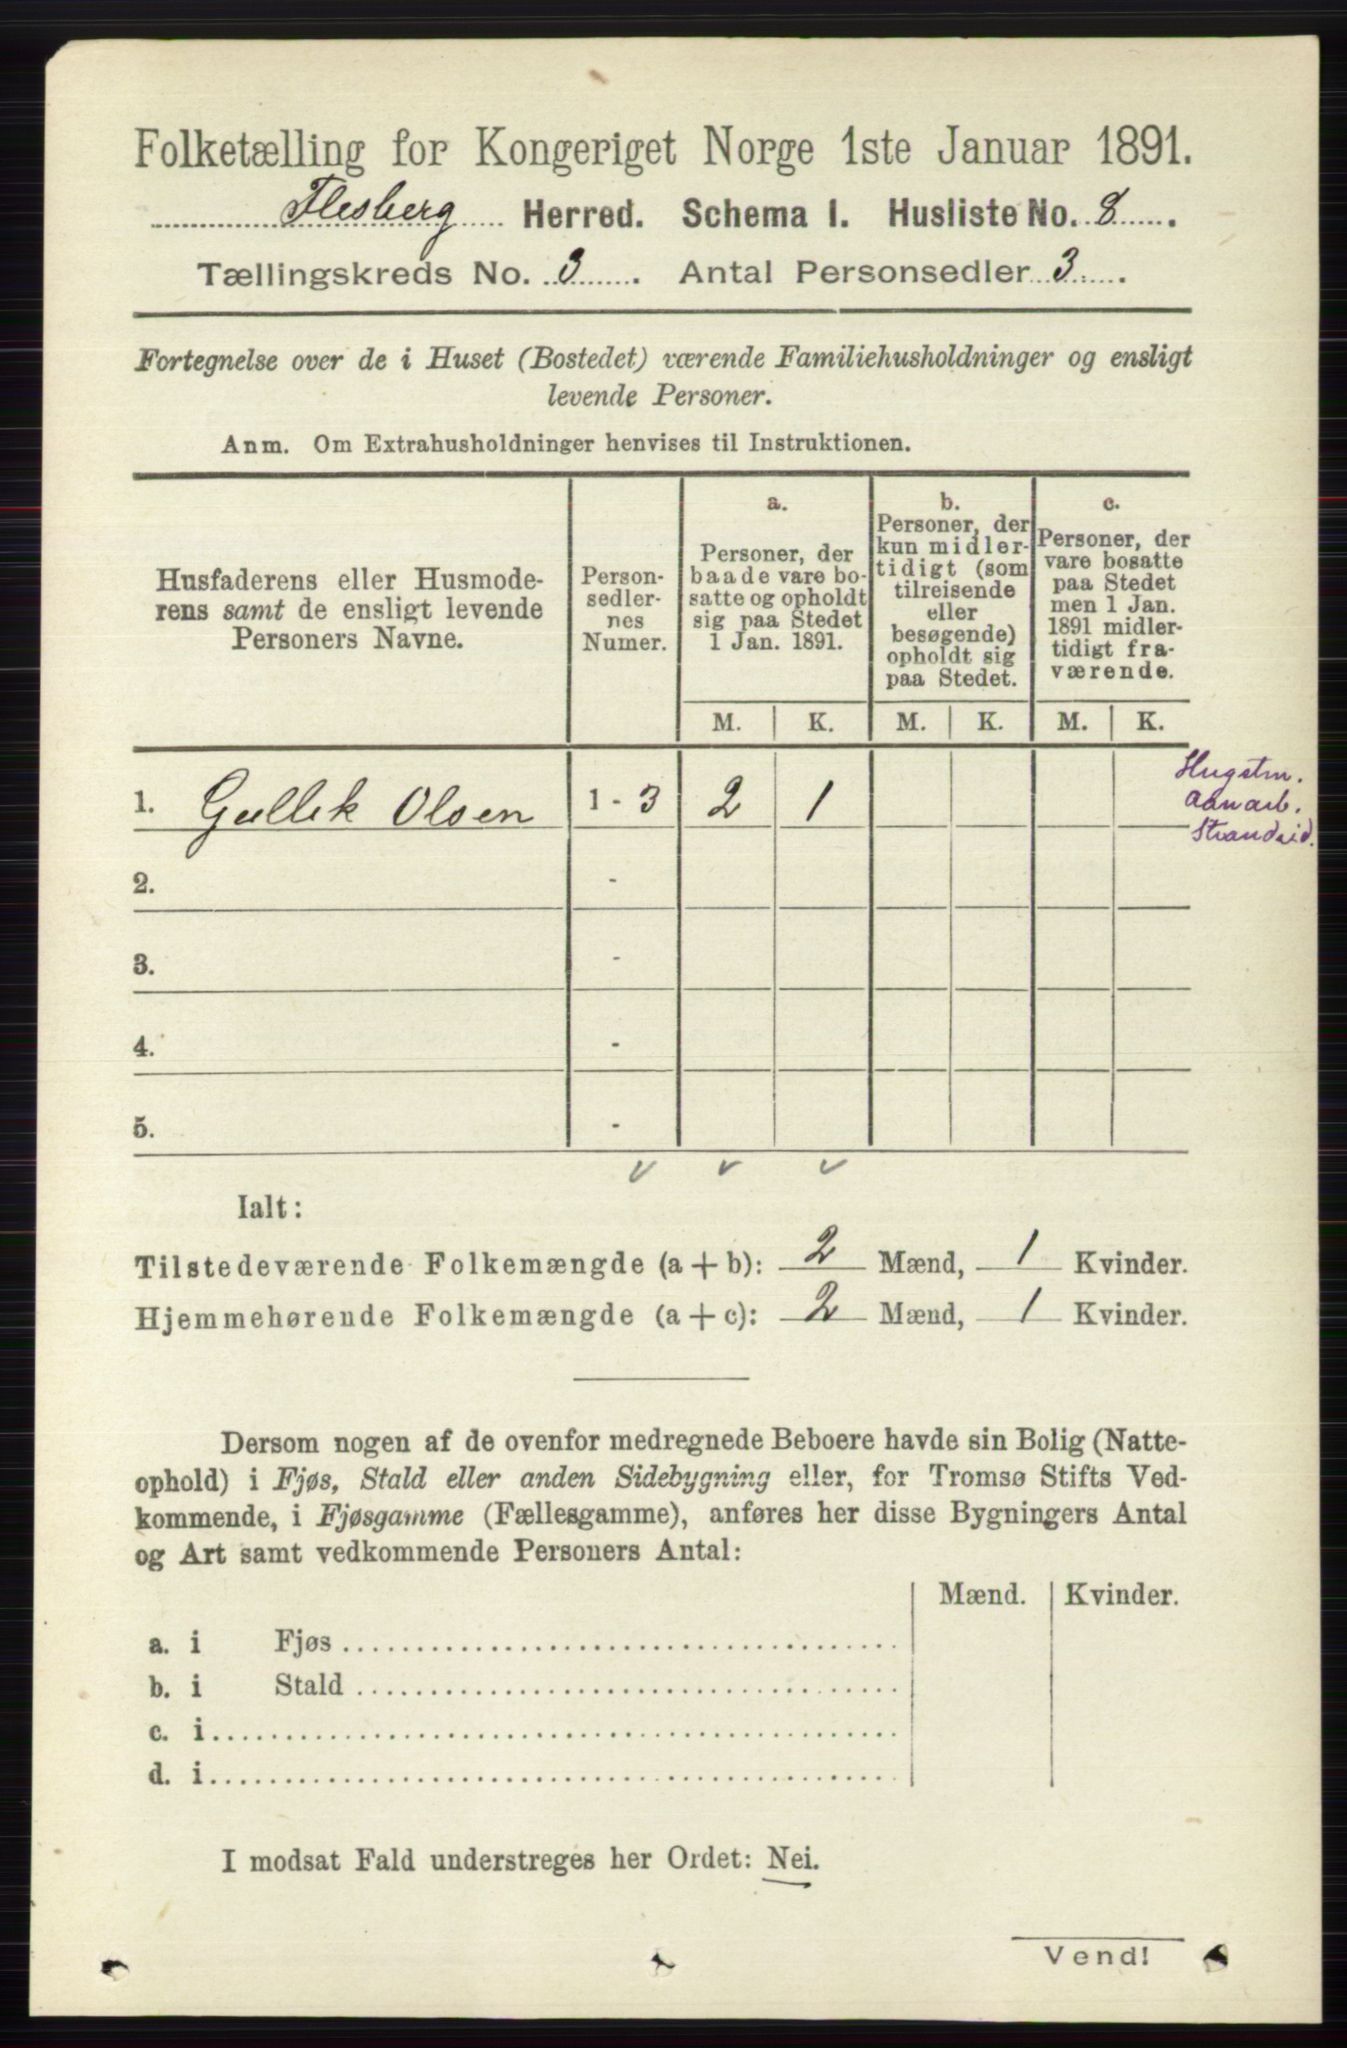 Folketælling for Kongeriget Norge 1ste Januar 1891.
Flesberg Herred. Schema I. Husliste No. 8.
Tællingskreds No. 3. Antal Personsedler 3.
Fortegnelse over de i Huset (Bostedet) værende Familiehusholdninger og ensligt
levende Personer.
Anm. Om Extrahusholdninger henvises til Instruktionen.
Husfaderens eller Husmode-
rens samt de ensligt levende
Personers Navne.
Person-
sedler-
nes
Numer.
a.
Personer, der
baade vare bo-
satte og opholdt
sig paa Stedet
1 Jan. 1891.
b.
Personer, der
kun midler-
tidigt (som
tilreisende
eller
besøgende)
opholdt sig
paa Stedet.
c.
Personer, der
vare bosatte
paa Stedet
men 1 Jan.
1891 midler-
tidigt fra-
værende.
M. K. M. K. M. K.
1. Gullik Olsen 1 - 3 2 1
Hugstm.
Aanarb.
Strandsid.
2. -
3. -
4. -
5. -
Ialt:
Tilstedeværende Folkemængde (a + b): 2 Mænd, 1 Kvinder.
Hjemmehørende Folkemængde (a + c): 2 Mænd, 1 Kvinder.
Dersom nogen af de ovenfor medregnede Beboere havde sin Bolig (Natte-
ophold) i Fjøs, Stald eller anden Sidebygning eller, for Tromsø Stifts Ved-
kommende, i Fjøsgamme (Fællesgamme), anføres her disse Bygningers Antal
og Art samt vedkommende Personers Antal:
Mænd. Kvinder.
a. i Fjøs
b. i Stald
c. i
d. i
I modsat Fald understreges her Ordet: Nei.
Vend!